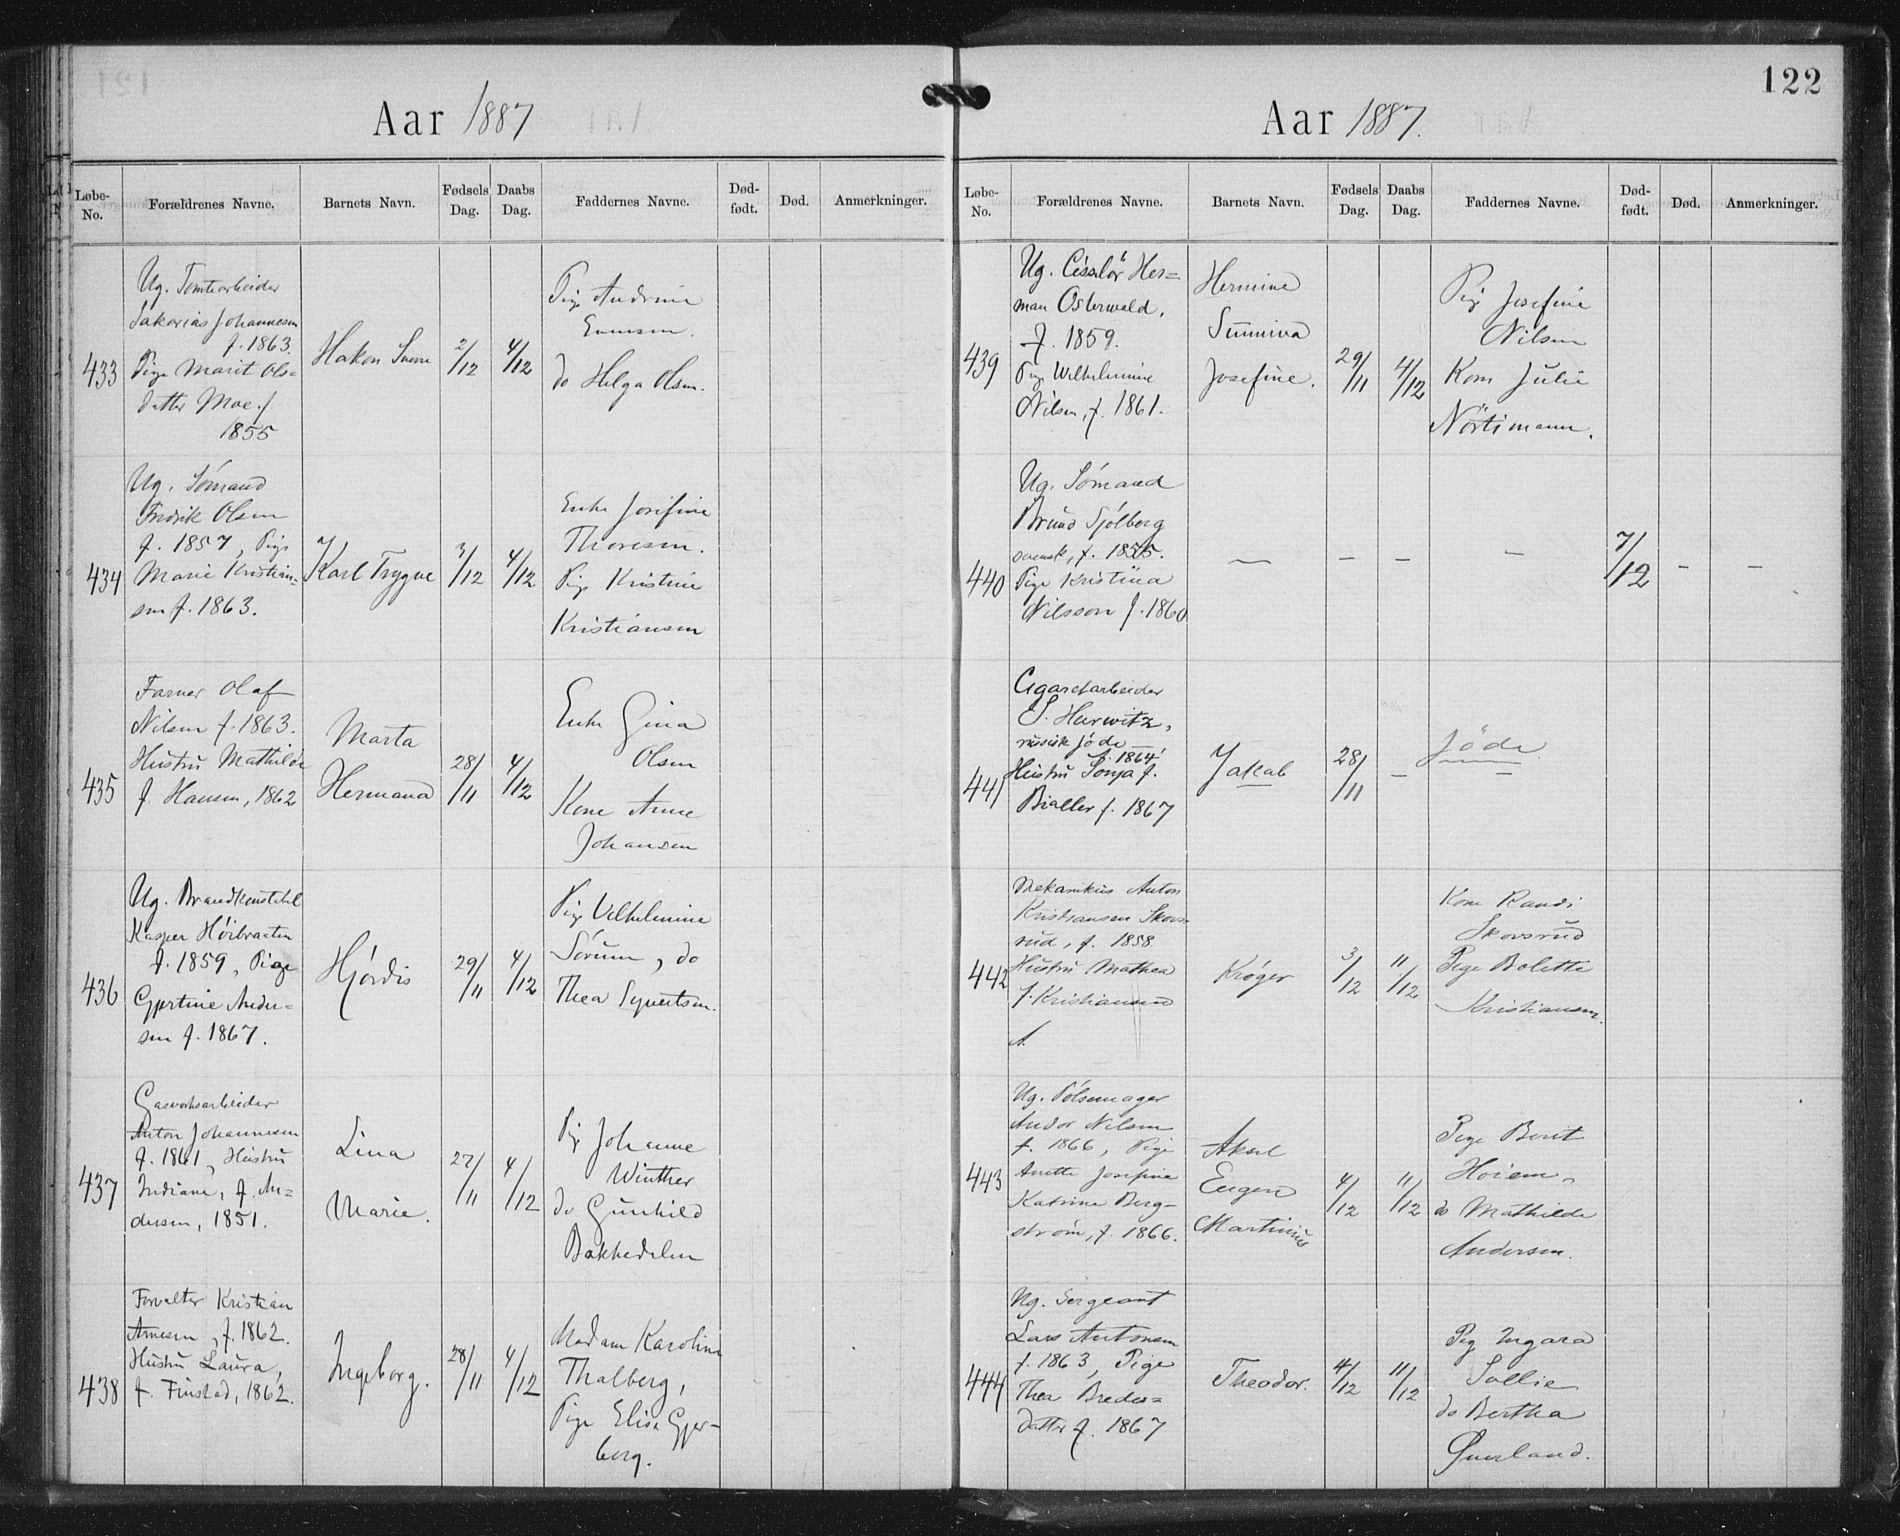 122
Aar 1887
Løbe-No. Forældrenes Navne. Barnets Navn. Fødsels Dag. Daabs Dag. Faddernes Navne. Død-født. Død. Anmerkninger.
433
Ug. Tomtearbeider
Sakarias Johannesen
f. 1863.
Pige Marit Ols=
datter Moe f.
1855
Hakon
2/12
4/12
Pige Andrine
do Helga Olsen.
434
Ug. Sómand
Fredrik Olsen
f. 1857, Pige
Marie Kristian-
sen f. 1863.
Karl Trygve
3/12
4/12
Enke Josifine
Thoresen.
Pige Kristine
Kristiansen
435
Farver Olaf
Nilsen f. 1863.
Hustru Mathilde
f. Hansen, 1862
Marta
Hermana
28/11
4/12
Enke Gina
Olsen
Kone Anne
Johansen
436
Ug. Brandkonstabel
Kasper Hóibraaten
f. 1859, Pige
Gjertine Ander-
sen f. 1867.
Hjórdis
29/11
4/12
Pige Vilhelmine
Sórum, do
Thea Syvertsen.
437
Gasverksarbeider
Anton Johannesen
f. 1861, Hustru
Indiane, f. An=
dersen, 1851.
Lina
Marie.
27/11
4/12
Pige Johanne
Winther
do Gunhild
Bakkedalen
438
Forvalter Kristian
Arnesen, f. 1862.
Hustru Laura,
f. Finstad, 1862.
Ingeborg.
28/11
4/12
Madam Karoline
Thalberg,
Pige Elise Gjer-
berg.
Aar 1887.
Løbe-No. Forældrenes Navne. Barnets Navn. Fødsels Dag. Daabs Dag. Faddernes Navne. Død-født. Død. Anmerkninger.
439
Ug. Ciselör Her=
man Osterwald,
f. 1859.
Pige Wilhelmine
Nilsen, f. 1861.
Hermine
Sunniva
Josefine.
29/11
4/12
Pige Josefine
Nilsen
Kone Julie
Nörtimann.
440
Ug. Sómand
Bruno Sjólberg
svensk, f. 1855.
Pige Kristina
Nilsson f. 1860
—
—
—
—
7/12
-
-
441
Cigaretarbeider
S. Hurwitz,
russisk jóde
f. 1864
Hustru Sonja f.
Bialler f. 1867
Jakob
28/11
—
Jöde
442
Mekanikus Anton
Kristiansen Skovs=
rud, f. 1858
Hustru Mathea
f. Kristiansen
Króger
3/12
11/12
Kone Randi
Skovsrud
Pige Bolette
Kristiansen.
443
Ug. Pólsemager
Andor Nilsen
f. 1866, Pige
Anette Josefine
Katrine Berg-
strøm, f. 1866.
Aksel
Eugen
Martinius
4/12
11/12
Pige Berit
Hoiem,
do Mathilde
Andersen.
444
Ug. Sergeant
Lars Antonsen
f. 1863, Pige
Thea Bredes=
datter f. 1867
Theodor.
4/12
11/12
Pige
Sollie
do Bertha